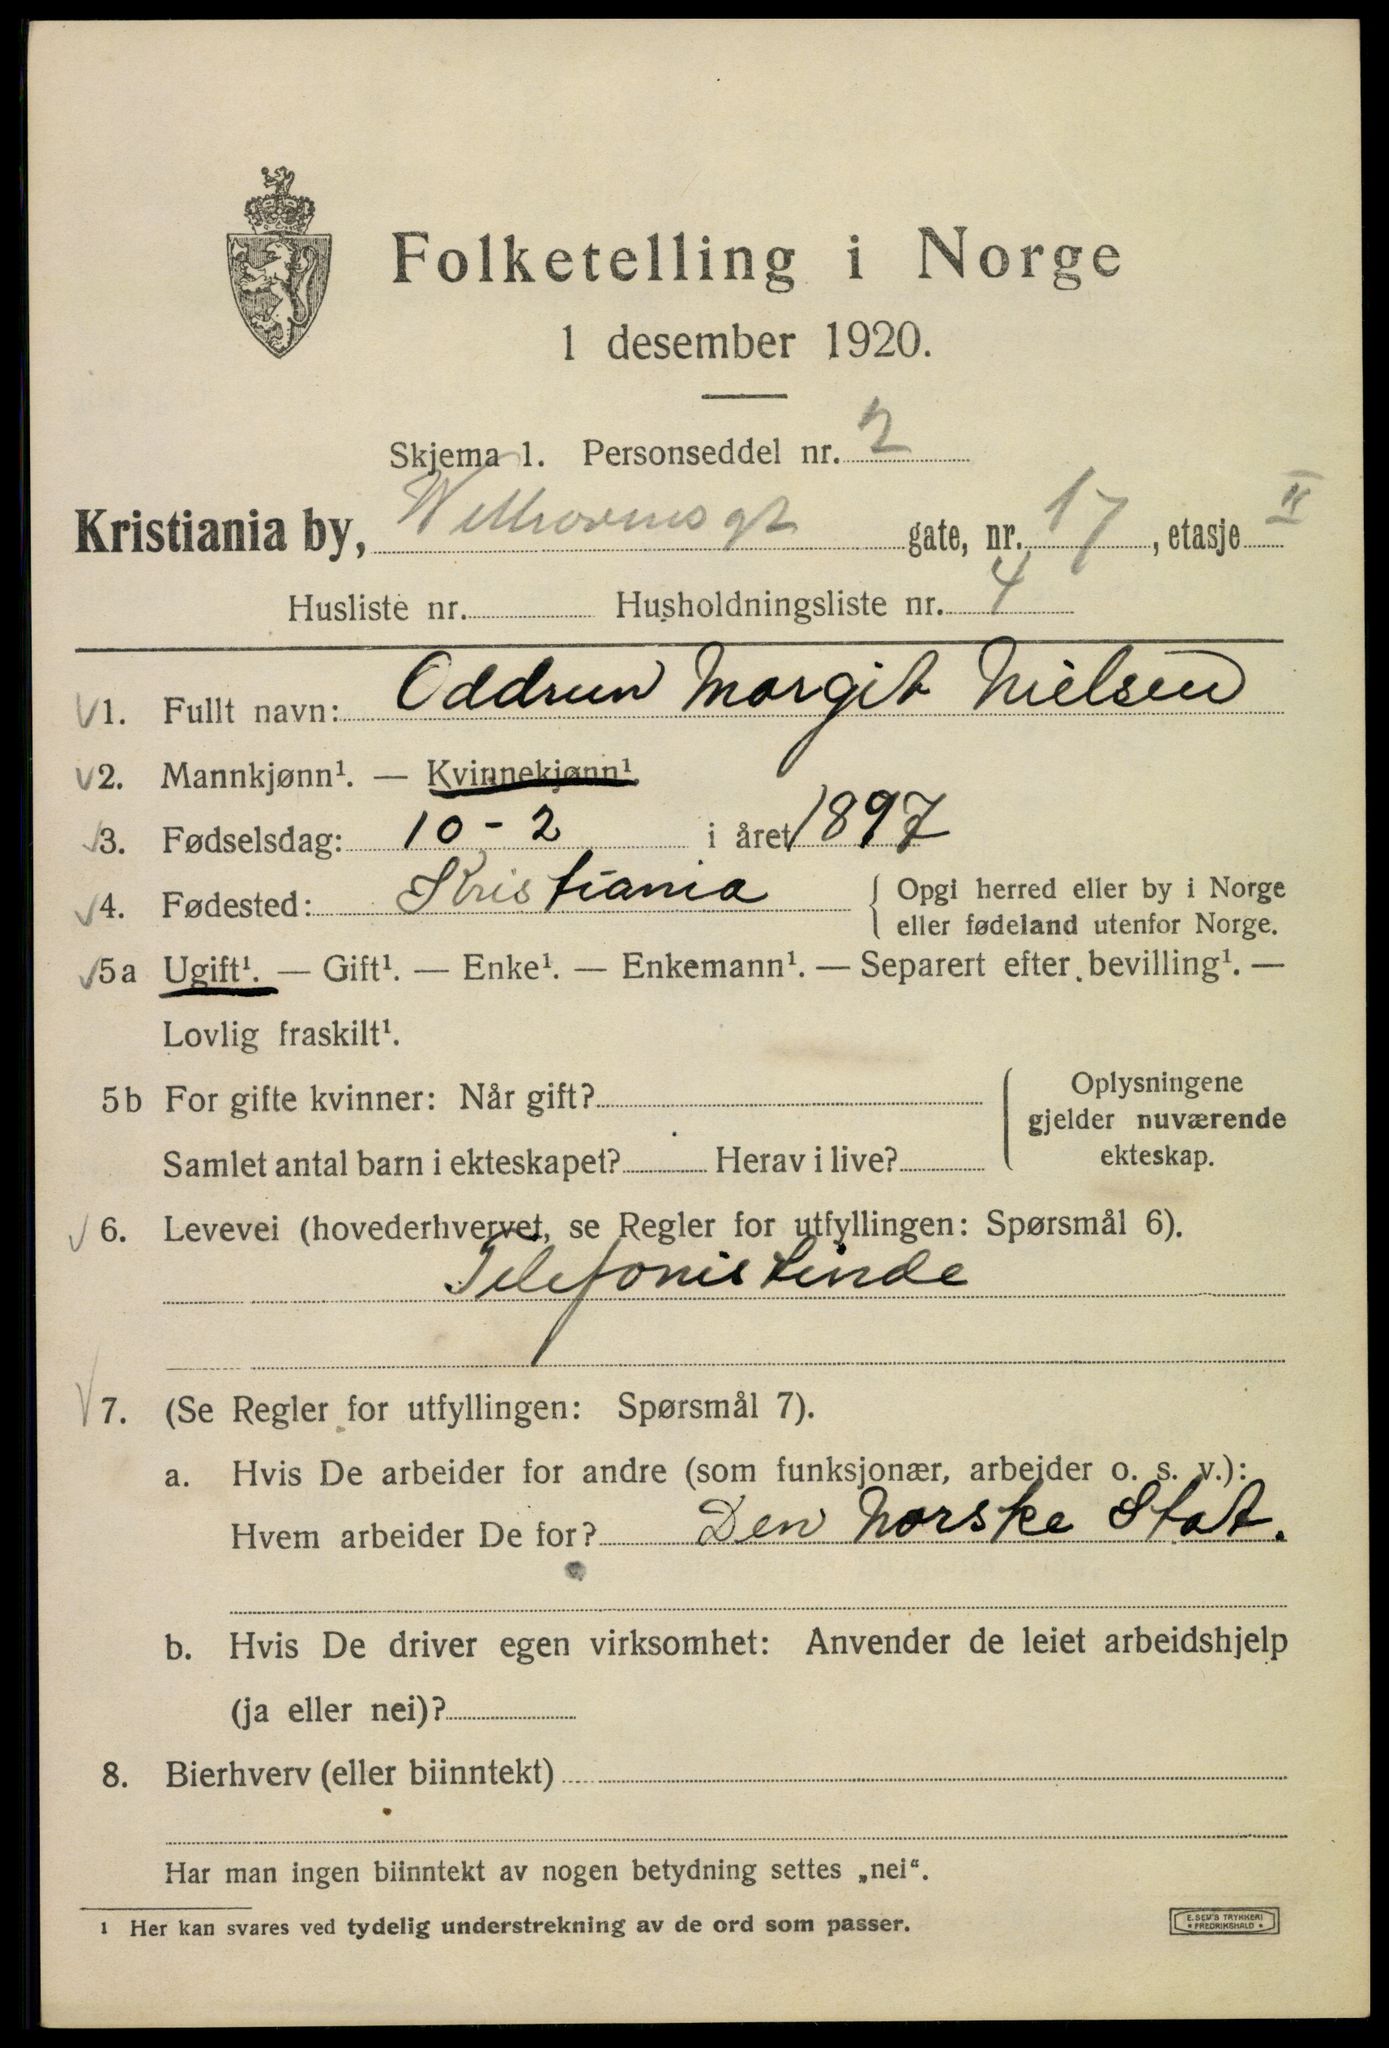 Folketelling i Norge
1 desember 1920.
Skjema 1. Personseddel nr. 2
Kristiania by, gate, nr. 17, etasje II
Husliste nr. Husholdningsliste nr. 4
1. Fullt navn: Oddrun Margit Nielsen
2. Mannkjønn¹. — Kvinnekjønn¹.
3. Fødselsdag: 10-2 i året 1897
4. Fødested: Kristiania { Opgi herred eller by i Norge
eller fødeland utenfor Norge.
5a Ugift¹. — Gift¹. — Enke¹. — Enkemann¹. — Separert efter bevilling¹. —
Lovlig fraskilt¹.
5b For gifte kvinner: Når gift?
Samlet antal barn i ekteskapet? Herav i live?
Oplysningene
gjelder nuværende
ekteskap.
6. Levevei (hovederhvervet, se Regler for utfyllingen: Spørsmål 6).
Telefonistinde
7. (Se Regler for utfyllingen: Spørsmål 7).
a. Hvis De arbeider for andre (som funksjonær, arbeider o. s. v.):
Hvem arbeider De for? Den Norske Stat.
b. Hvis De driver egen virksomhet: Anvender de leiet arbeidshjelp
(ja eller nei)?
8. Bierhverv (eller biinntekt)
Har man ingen biinntekt av nogen betydning settes „nei“.
1 Her kan svares ved tydelig understrekning av de ord som passer.
E. SEM'S TRYKKERI
* FREDRIKSHALD *